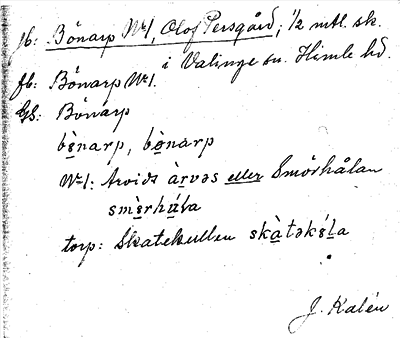 jb: Bönarp No 1, Olof Persgård, ½ mtl. sk.
i Valinge sn. Himle hd.
fb: Bönarp No 1.
GS: Bönarp
bènarp, bònarp
No 1: Arvids àrvəs eller Smörhålan
smèrhúla
torp: Skatekullen skàtəkə́la
J. Kalén